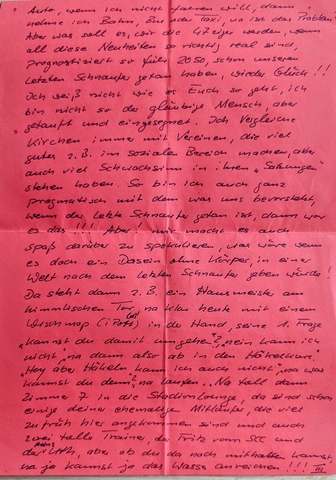 Auto, wenn ich nicht fahren will, dann
nehme ich Bahn, Bus oder Taxi, wo ist das Problem
Aber was soll es, wir die 47iger werden, wenn
all diese Neuheiten so richtig real sind,
prognostiziert so für 2050, schon unseren
letzten Schnaufer getan haben, wieder Glück!!!
Ich weiß nicht wie es Euch so geht, ich
bin nicht so der gläubige Mensch, aber
getauft und eingesegnet. Ich vergleiche
Kirchen immer mit Vereinen, die viel
gutes z.B. im sozialen Bereich machen, aber
auch viel Schwachsinn in ihren "Satzungen"
stehen haben. So bin ich auch ganz
pragmatisch mit dem was uns bevorsteht,
wenn der letzte Schnaufer getan ist, dann war
es das!!! Aber! mir macht es auch
Spaß darüber zu spekulieren, was wäre wenn
es doch ein Dasein ohne Körper, in einer
Welt nach dem letzten Schnaufer geben würde!
Da steht dann z.B. ein Hausmeister am
himmlischen Tor, na klar heute mit einem
Wischmop in der Hand, seine 1. Frage
"kannst du damit umgehen?", nein kann ich
nicht, "na dann also ab in den Häkelkurs.
"Hey aber Häkeln kann ich auch nicht", "na was
kannst du denn", na laufen. "Na toll dann
Zimmer 7 in die Stadionlounge, da sind schon
einige deiner ehemaligen Mitläufer, die viel
zu früh hier angekommen sind und auch
zwei tolle Trainer, der Fritz vom SCC und
der Heinz, aber ob du da noch mithalten kannst,
na ja kannst ja das Wasser anreichen!!!
III